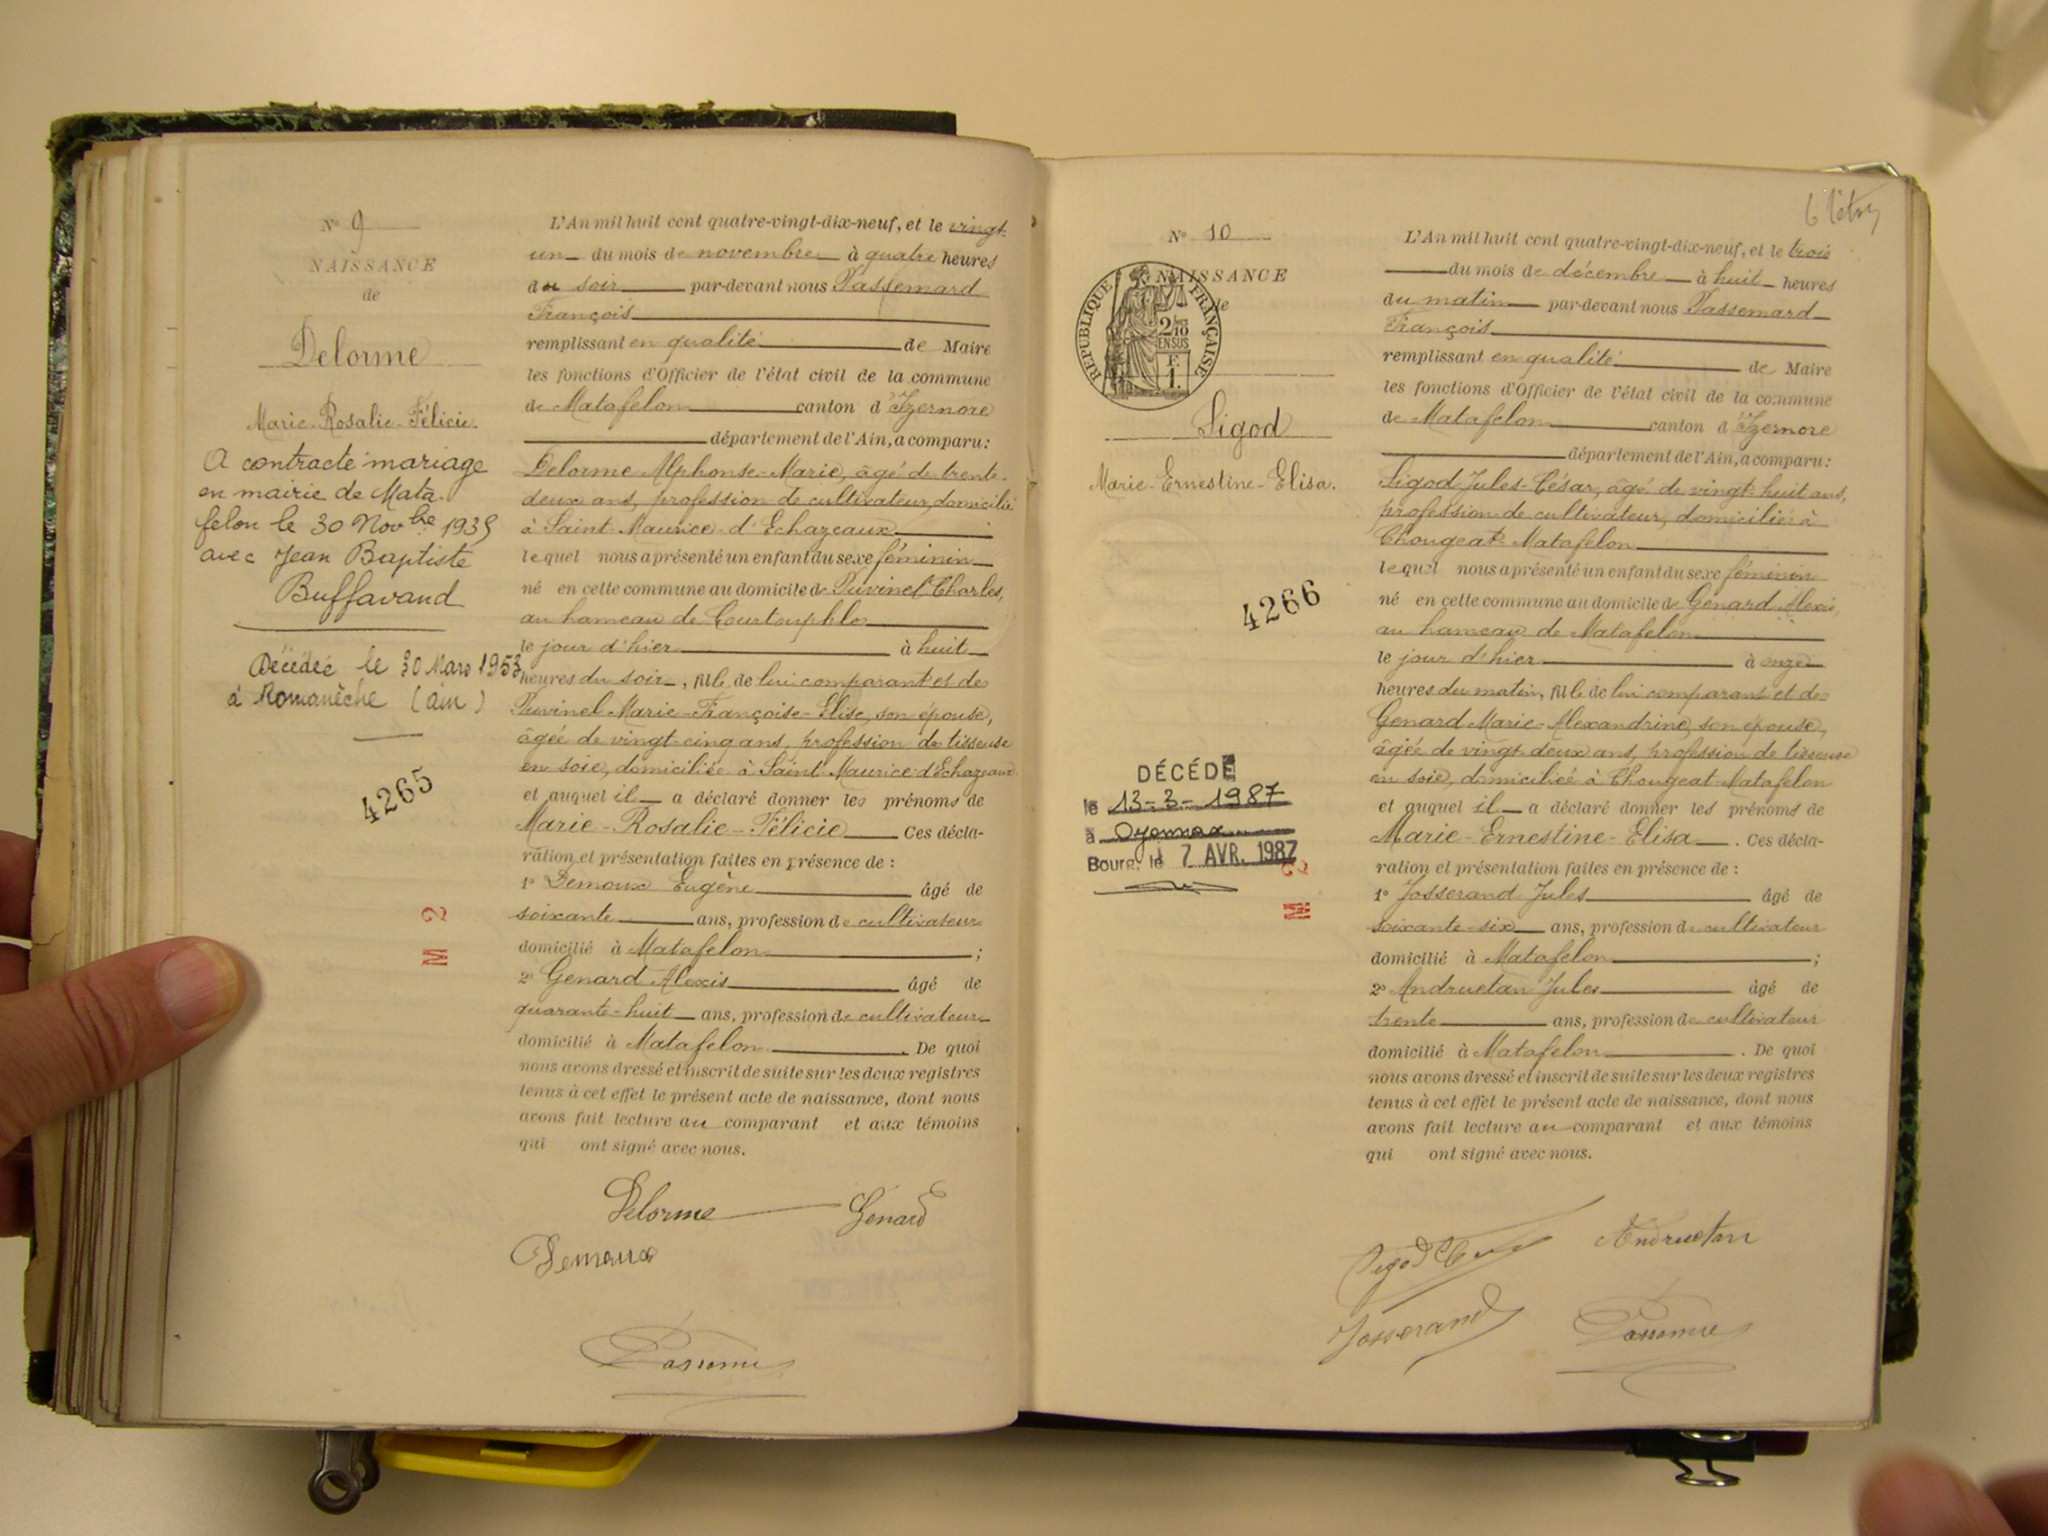 Nº 9
NAISSANCE
de
Delorme
Marie-Rosalie-Félicie.
A contracté mariage
en mairie de Mata-
felon le 30 Novbre 1935
avec Jean Baptiste
Buffavand
Décédée le 30 Mars 1953
à Romanèche (ain)
4265
M 2
L'An mil huit cent quatre-vingt-dix-neuf, et le vingt-
un du mois de novembre à quatre heures
du soir par-devant nous Passemard
François
remplissant en qualité de Maire
les fonctions d'Officier de l'état civil de la commune
de Matafelon canton d'Izernore
département de l'Ain, a comparu:
Delorme Alphonse-Marie, âgé de trente-
deux ans, profession de cultivateur, domicilié
à Saint-Maurice-d'Echazeaux
lequel nous a présenté un enfant du sexe féminin
né en cette commune au domicile de Tuvinel Charles,
au hameau de Courtouphle
le jour d'hier à huit
heures du soir, fille de lui comparant et de
Tuvinel Marie-Françoise-Elise, son épouse,
âgée de vingt-cinq ans, profession de tisseuse
en soie, domiciliée à Saint-Maurice-d'Echazeaux
et auquel il a déclaré donner les prénoms de
Marie-Rosalie-Félicie Ces décla-
ration et présentation faites en présence de :
1º Demoux Eugène âgé de
soixante ans, profession de cultivateur
domicilié à Matafelon ;
2º Genard Alexis âgé de
quarante-huit ans, profession de cultivateur
domicilié à Matafelon . De quoi
nous avons dressé et inscrit de suite sur les deux registres
tenus à cet effet le présent acte de naissance, dont nous
avons fait lecture au comparant et aux témoins
qui ont signé avec nous.
Delorme Genard
Demoux
Nº 10
NAISSANCE
de
RÉPUBLIQUE FRANÇAISE
2/10
EN SUS
F.
1.
Sigod
Marie-Ernestine-Elisa.
4266
DÉCÉDÉ
le 13-3-1987
à Oyonnax
Bourg, le 7 AVR. 1987
M 2
L'An mil huit cent quatre-vingt-dix-neuf, et le trois
du mois de décembre à huit heures
du matin par-devant nous Passemard
François
remplissant en qualité de Maire
les fonctions d'Officier de l'état civil de la commune
de Matafelon canton d'Izernore
département de l'Ain, a comparu:
Sigod Jules-César, âgé de vingt-huit ans,
profession de cultivateur, domicilié à
Chougeat-Matafelon
lequel nous a présenté un enfant du sexe féminin
né en cette commune au domicile de Genard Alexis,
au hameau de Matafelon
le jour d'hier à onze
heures du matin, fille de lui comparant et de
Genard Marie-Alexandrine, son épouse,
âgée de vingt-deux ans, profession de tisseuse
en soie, domiciliée à Chougeat-Matafelon
et auquel il a déclaré donner les prénoms de
Marie-Ernestine-Elisa . Ces décla-
ration et présentation faites en présence de :
1º Josserand Jules âgé de
soixante-six ans, profession de cultivateur
domicilié à Matafelon ;
2º Andruetan Jules âgé de
trente ans, profession de cultivateur
domicilié à Matafelon . De quoi
nous avons dressé et inscrit de suite sur les deux registres
tenus à cet effet le présent acte de naissance, dont nous
avons fait lecture au comparant et aux témoins
qui ont signé avec nous.
Sigod Andruetan
Josserand